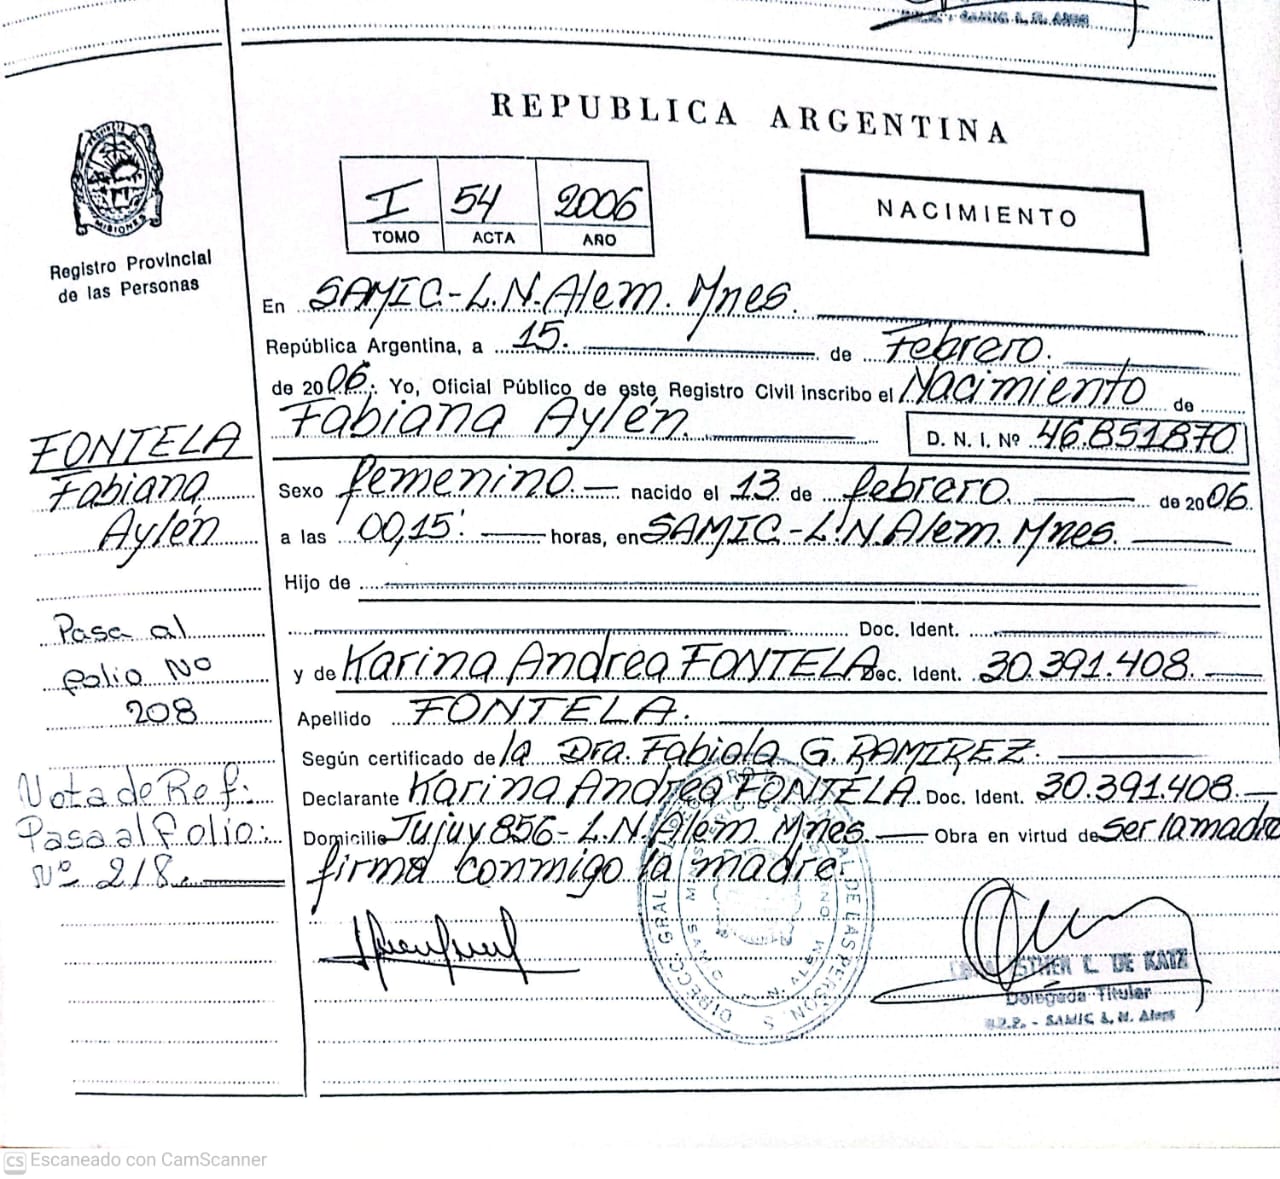 S.R.P. - SAMIC L. N. Alem
REPUBLICA ARGENTINA
PROVINCIA DE
MISIONES
Registro Provincial
de las Personas
I 54 2006
TOMO ACTA AÑO
NACIMIENTO
En SAMIC.-L.N.Alem. Mnes.
República Argentina, a 15. de Febrero.
de 2006. Yo, Oficial Público de este Registro Civil inscribo el Nacimiento de
Fabiana Aylén. D. N. I. Nº 46.851870
Sexo femenino.- nacido el 13 de febrero. de 2006.
a las 00,15' horas, en SAMIC.-L.N.Alem. Mnes.
Hijo de
Doc. Ident.
y de Karina Andrea FONTELA Doc. Ident. 30.391.408.
Apellido FONTELA.
Según certificado de la Dra. Fabiola G. RAMIREZ.
Declarante Karina Andrea FONTELA. Doc. Ident. 30.391.408.-
Domicilio Jujuy 856- L.N.Alem. Mnes. Obra en virtud de ser la madre
firma conmigo la madre.
FONTELA
Fabiana
Aylén
Pasa al
folio Nº
208
Nota de Ref:
Pasa al folio:
Nº 218.
ESTHER L. DE KATZ
Delegada Titular
- SAMIC L. N. Alem
CS Escaneado con CamScanner